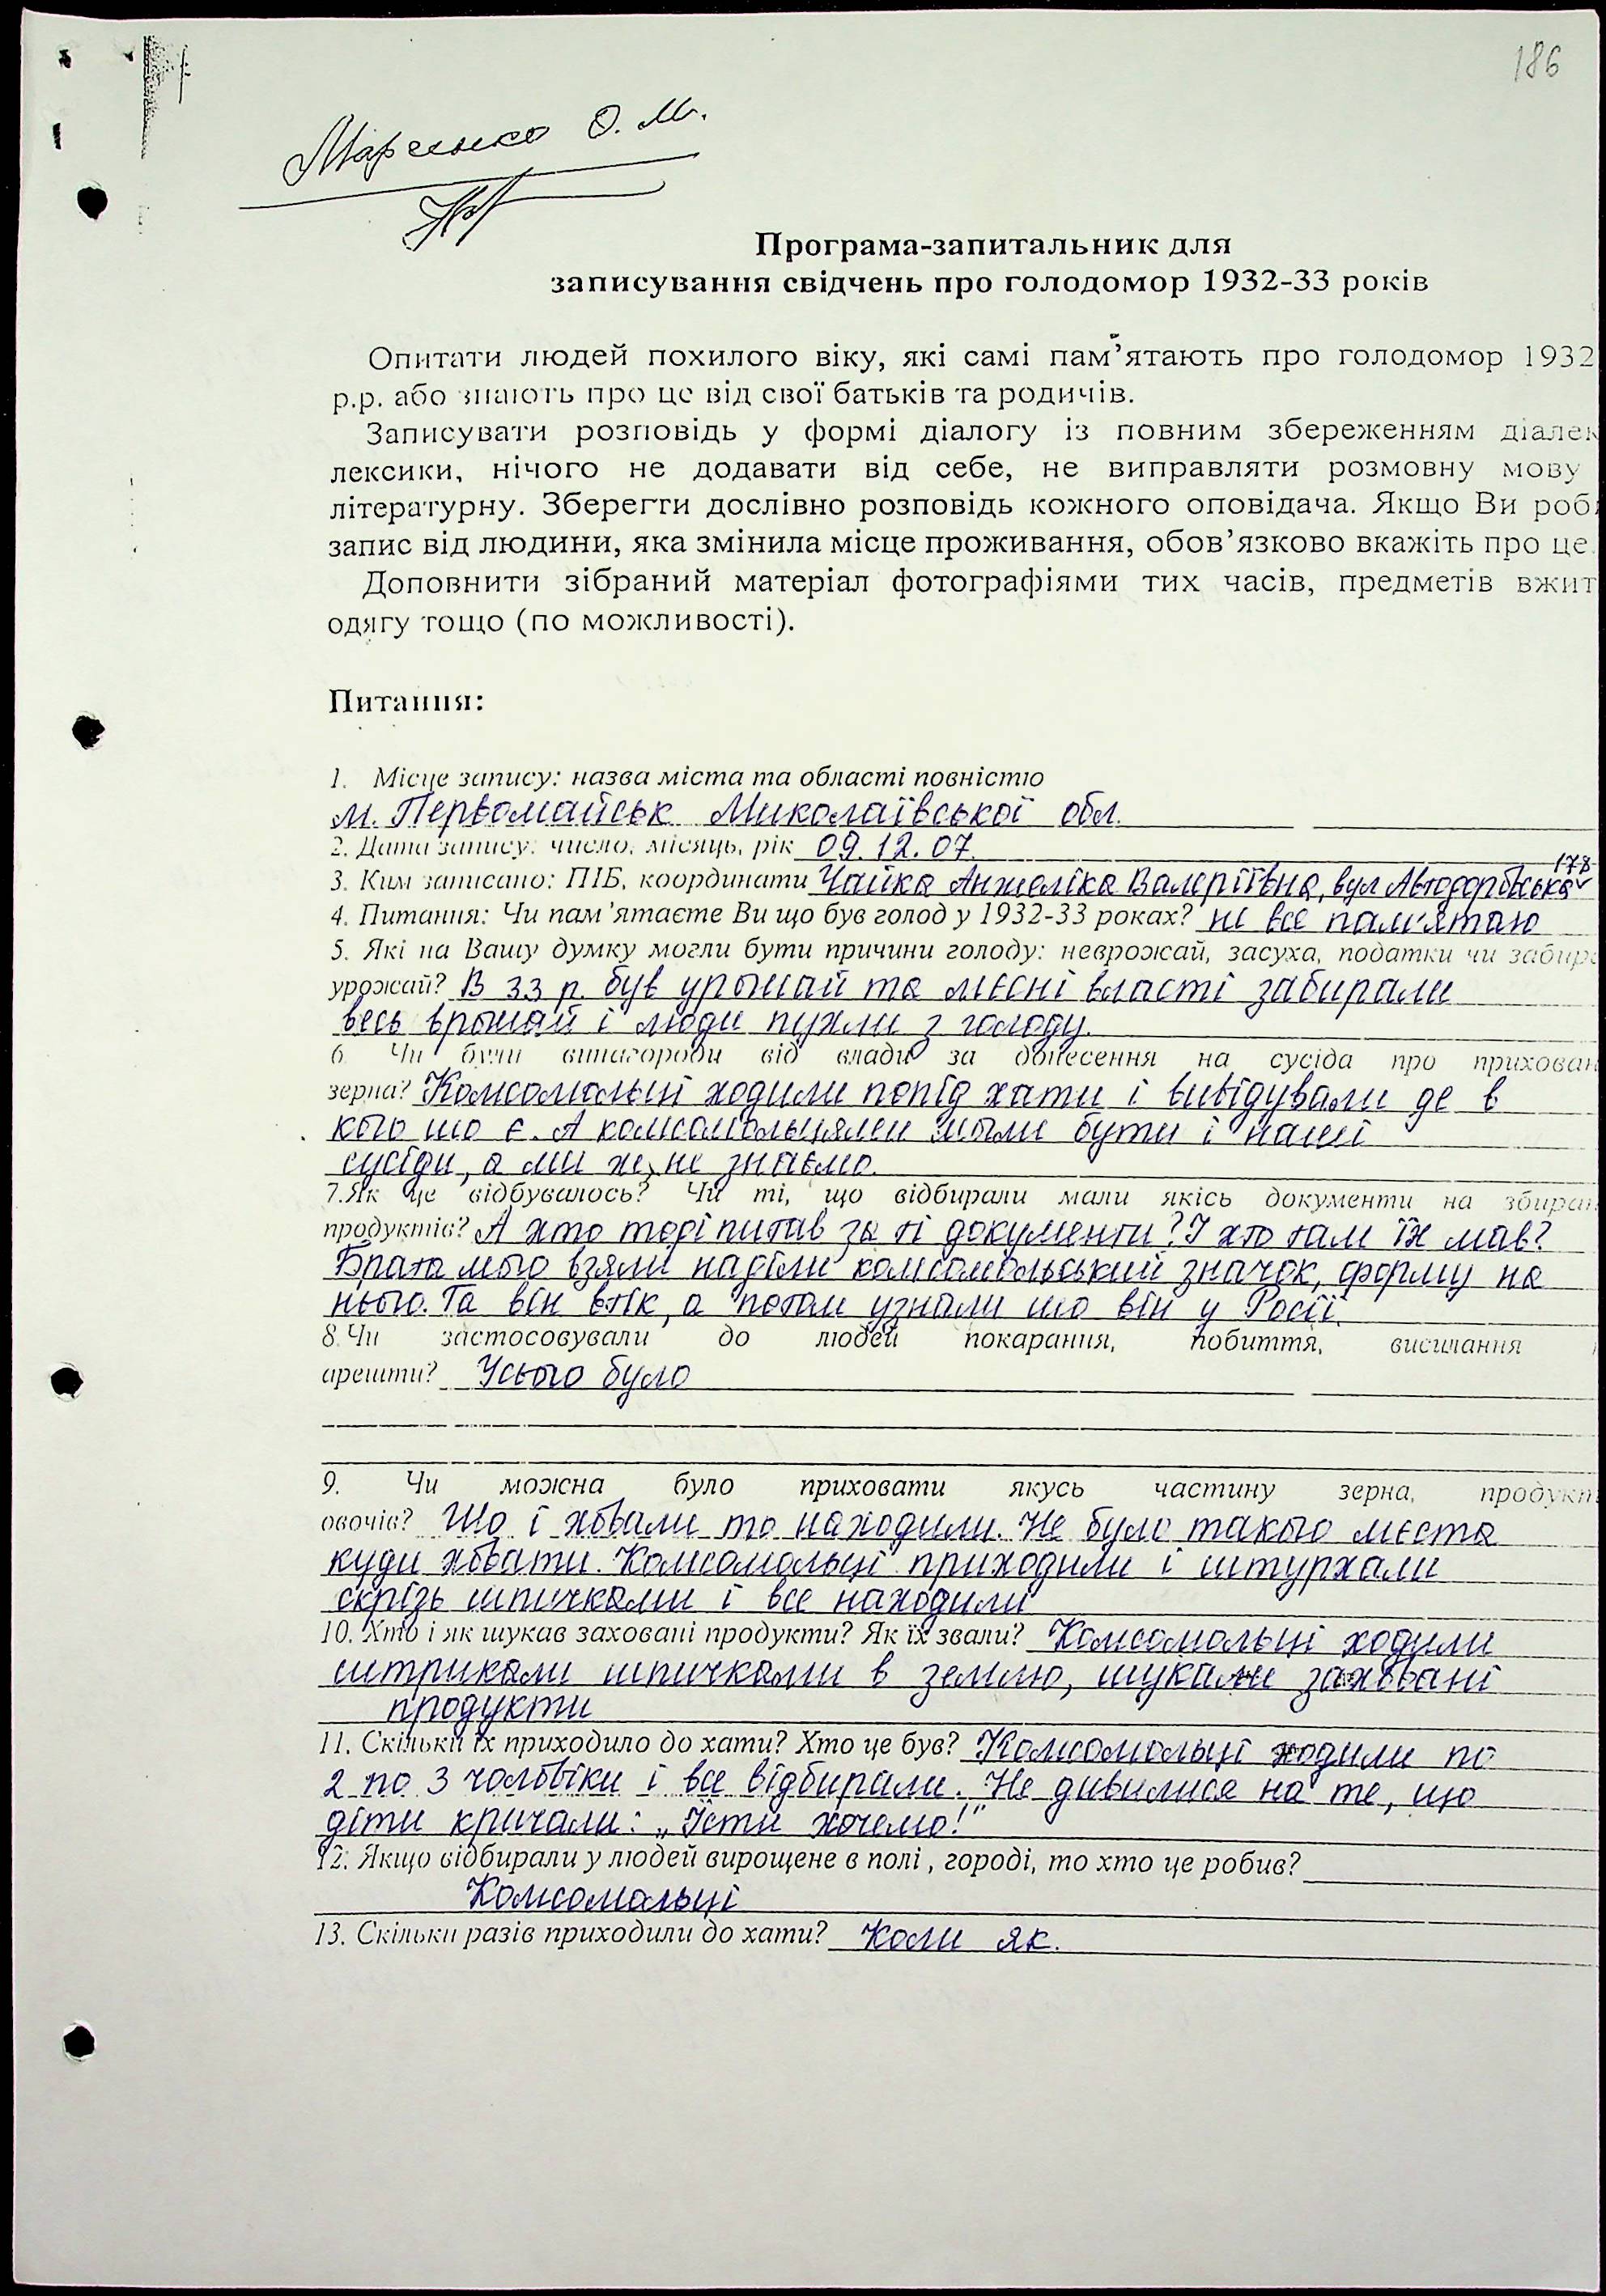 186
Марченко О. М.
Програма-запитальник для
записування свідчень про голодомор 1932-33 років
Опитати людей похилого віку, які самі пам’ятають про голодомор 1932
р.р. або знають про це від свої батьків та родичів.
Записувати розповідь у формі діалогу із повним збереженням діалек
лексики, нічого не додавати від себе, не виправляти розмовну мову
літературну. Зберегти дослівно розповідь кожного оповідача. Якщо Ви роб
запис від людини, яка змінила місце проживання, обов’язково вкажіть про це.
Доповнити зібраний матеріал фотографіями тих часів, предметів вжит
одягу тощо (по можливості).
Питання:
1. Місце запису: назва міста та області повністю
м. Первомайськ Миколаївської обл.
2. Дата запису: число, місяць, рік 09.12.07
178
3. Ким записано: ПІБ, координати Чайка Анжеліка Валеріївна, вул Автодорівська
4. Питання: Чи пам’ятаєте Ви що був голод у 1932-33 роках? не все пам'ятаю
5. Які на Вашу думку могли бути причини голоду: неврожай, засуха, податки чи забира
урожай? В 33 р. був урожай та мєсні власті забирали
весь врожай і люди пухли з голоду.
6. Чи були винагороди від влади за донесення на сусіда про прихован
зерна? Комсомольці ходили попід хати і вивідували де в
кого шо є. А комсомольцями могли бути і наші
сусіди, а ми ж не знаємо.
7.Як це відбувалось? Чи ті, що відбирали мали якісь документи на збиран
продуктів? А хто тоді питав за ті документи? І хто там їх мав?
Брата мого взяли наділи комсомольський значок, форму на
нього. Та він втік, а потом узнали шо він у Росії.
8.Чи застосовували до людей покарання, побиття, висилання
арешти? Усього було
9. Чи можна було приховати якусь частину зерна, продукт
овочів? Шо і ховали то находили. Не було такого мєста
куди ховати. Комсомольці приходили і штурхали
скрізь шпичками і все находили
10. Хто і як шукав заховані продукти? Як їх звали? Комсомольці ходили
штрикали шпичками в землю, шукали заховані
продукти
11. Скільки їх приходило до хати? Хто це був? Комсомольці ходили по
2 по 3 чоловіки і все відбирали. Не дивилися на те, що
діти кричали: „Їсти хочемо!"
12. Якщо відбирали у людей вирощене в полі , городі, то хто це робив?
Комсомольці
13. Скільки разів приходили до хати? Коли як.